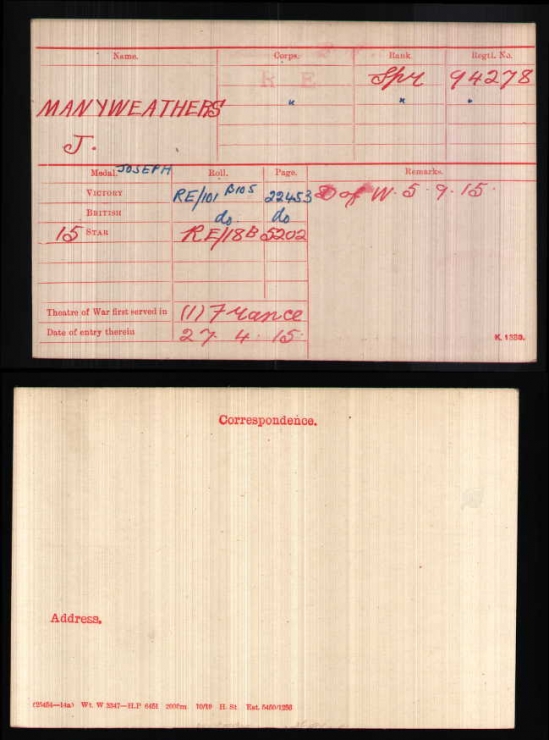 Name. Corps. Rank. Regtl. No.
R E Spr 94278
MANYWEATHERS " " "
J.
JOSEPH
Medal. Roll. Page. Remarks.
VICTORY RE/101 B105 22453 D of W. 5.9.15.
BRITISH do. do
15 STAR RE/18B 5202
Theatre of War first served in (1) France
Date of entry therein 27.4.15.
K. 1380.
Correspondence.
Address.
Wt. W 3347—H.P 6481 2000m 10/19 H. St